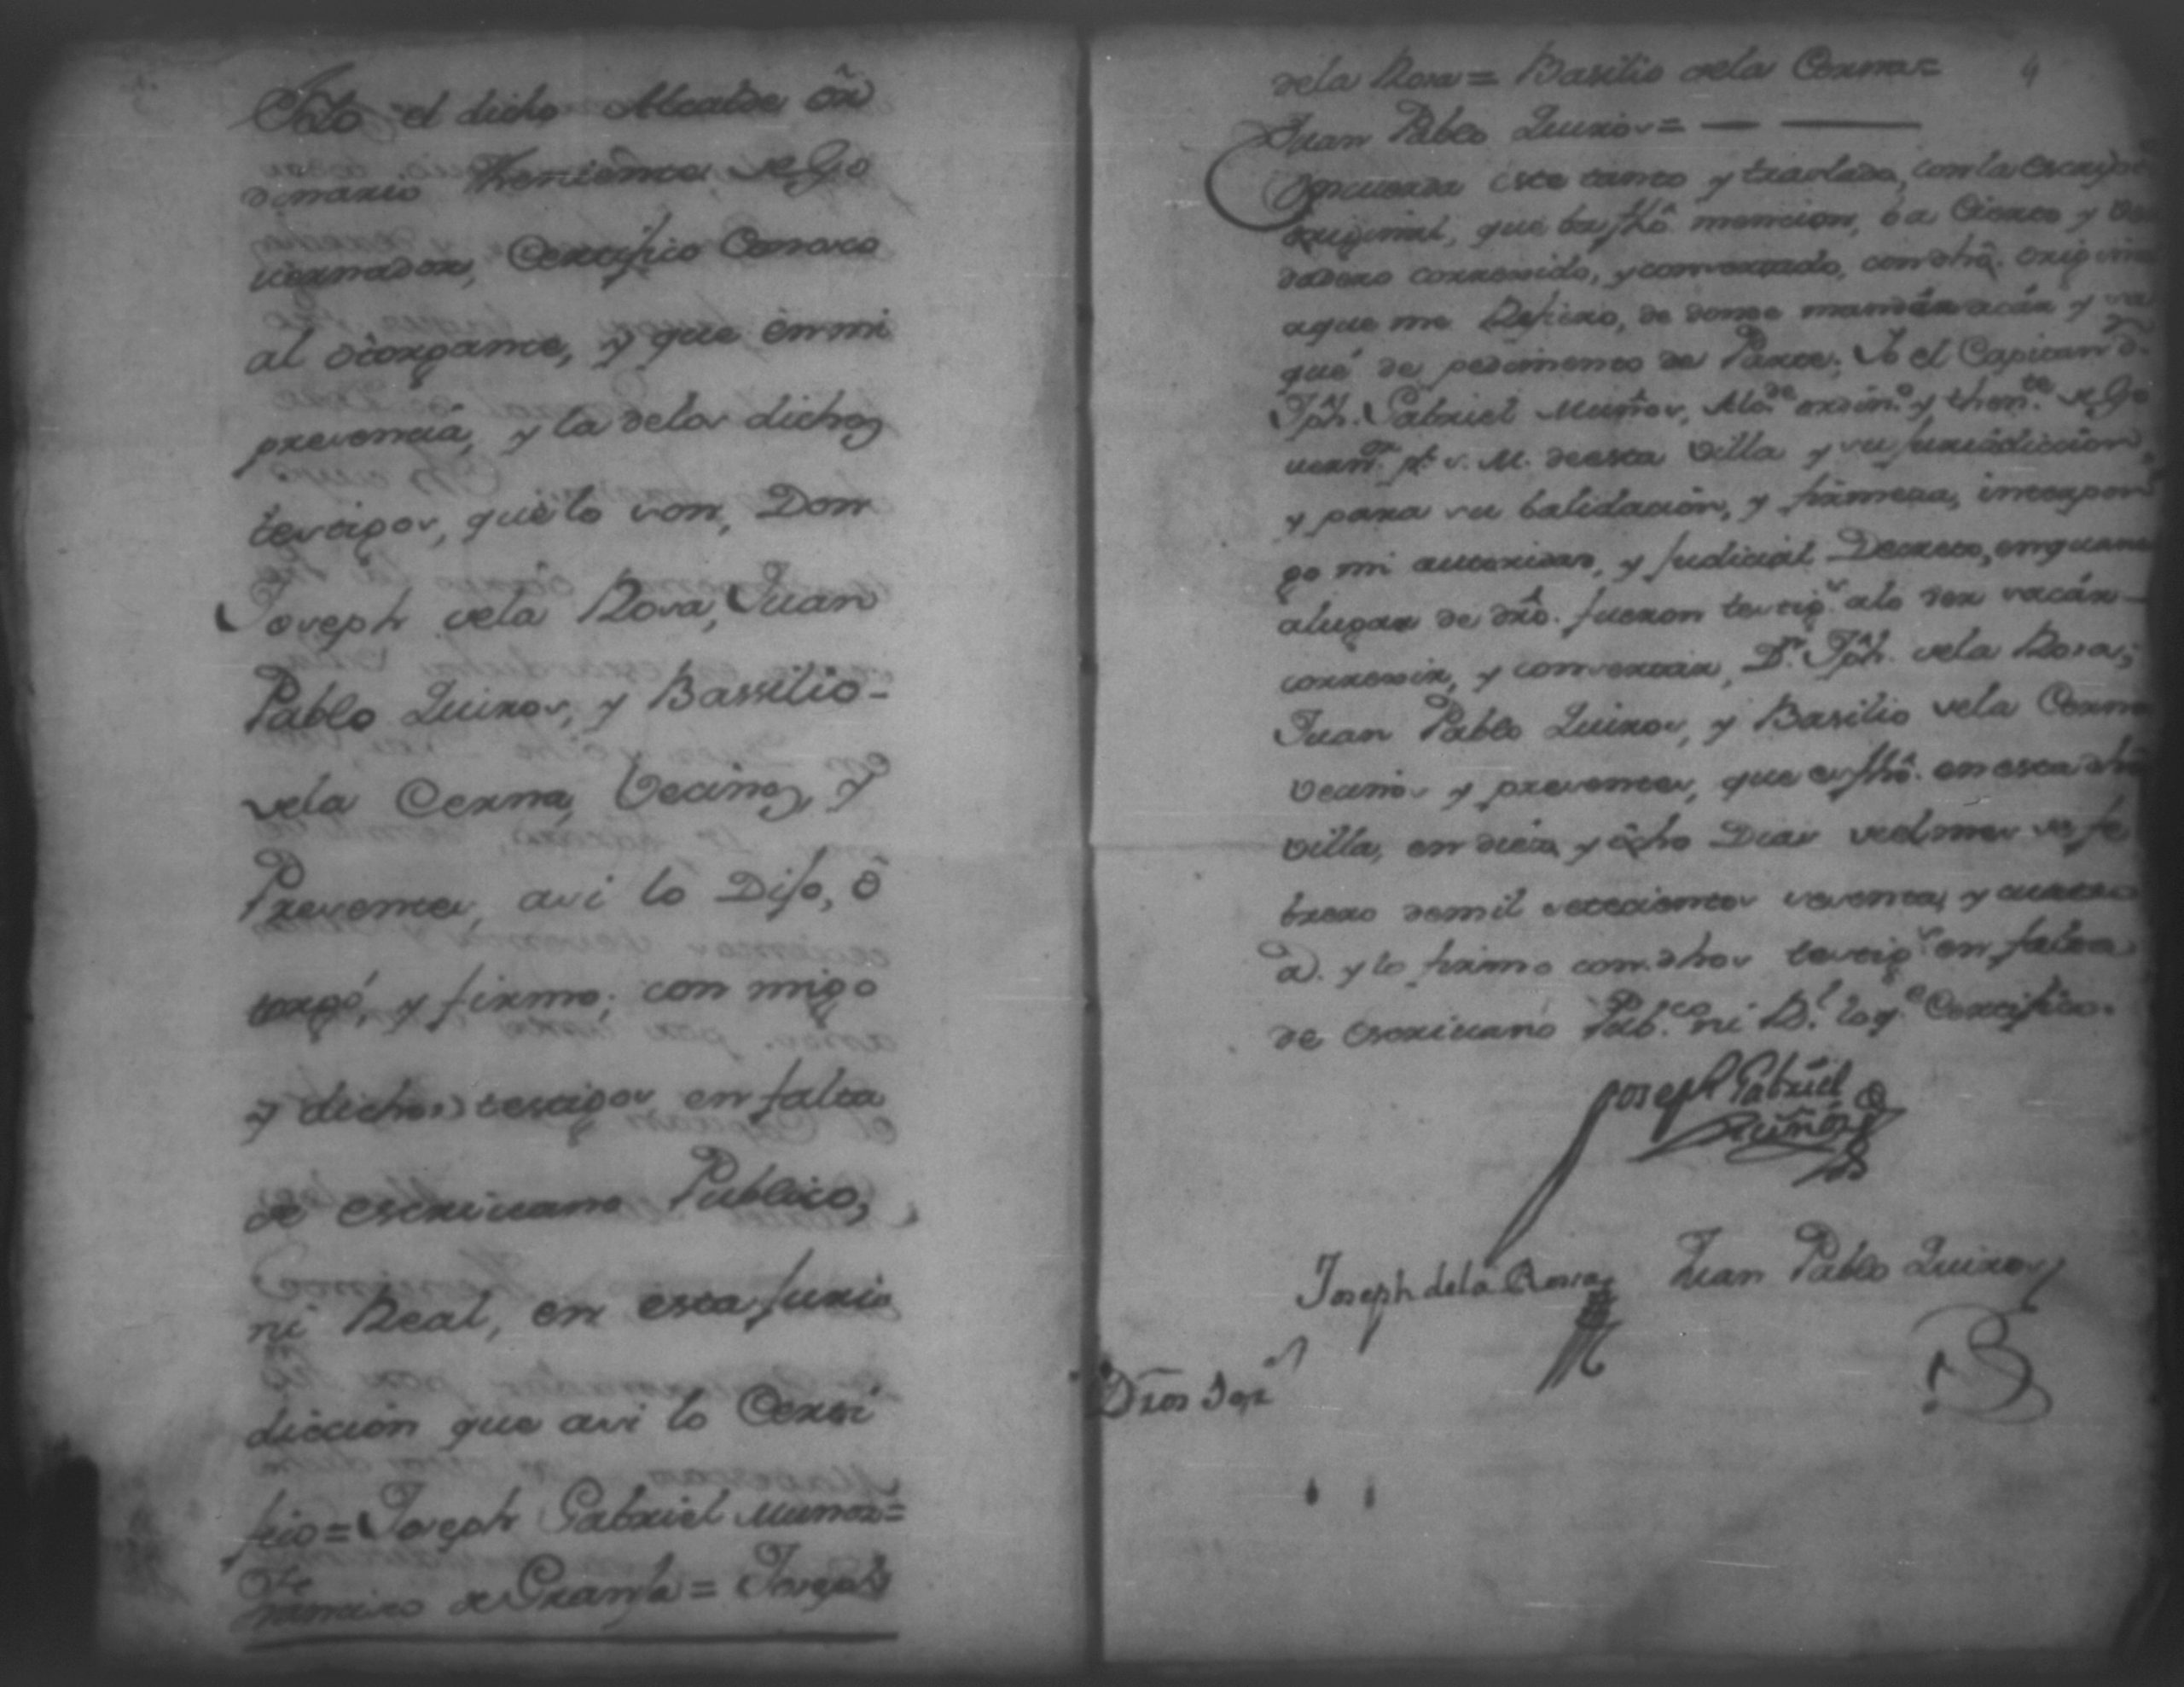 Yo el dicho Alcalde ôr
dinario Theniente de Go
uernador, Certifico Conosco
al otorgante, y que en mi
presencia, y la delos dichos
testigos, que lo son, Don
Joseph dela Rosa, Juan
Pablo Quiros, y Bassilio-
dela Cerna, Vecinos, y
Presentes, asi lo Dijo, ô
torgó, y firmo; con migo
y dichos testigos en falta
de escriuano Publico,
ni Real, en esta juris
diccion que asi lo Certi
fico = Joseph Gabriel Munos =
de Granja = Joseph
dela Rosa = Basilio dela Cerna = 4
Juan Pablo Quiros =
Concuerda este tanto y traslado, con la
original, que ba fhô mencion, ba Cierto y
dadero correxido, y consertado, con dhô. origina
aque me Refiero, de donde mandé sacar y
qué de pedimento de Parte; Yo el Capitan dn.
Jph. Gabriel Muños, Alcde. ordino. y thente. de Go
uernr. pr. s. M. de esta Villa y su jurisdiccion,
y para su balidacion, y firmeza, interpon
go mi autoridad, y judicial Decreto, en quanto
alugar de dro. fueron testigs. alo ver sacar
correxir, y consertar, Dn. Jph. dela Rosa;
Juan Pablo Quiros, y Basilio dela Cerna
Vecinos y presentes, que es fhô. en esta dha
Villa, en dièz y ôcho Dias del mes de fe
brero de mil setecientos sesenta, y quatro
a. y lo firmo con dhos testigs. en falta
de escriuano Pubco. ni Rl. lo qe. Certifico.
Joseph Gabriel
Muñoz
Joseph dela Rossa Juan Pablo Quiros